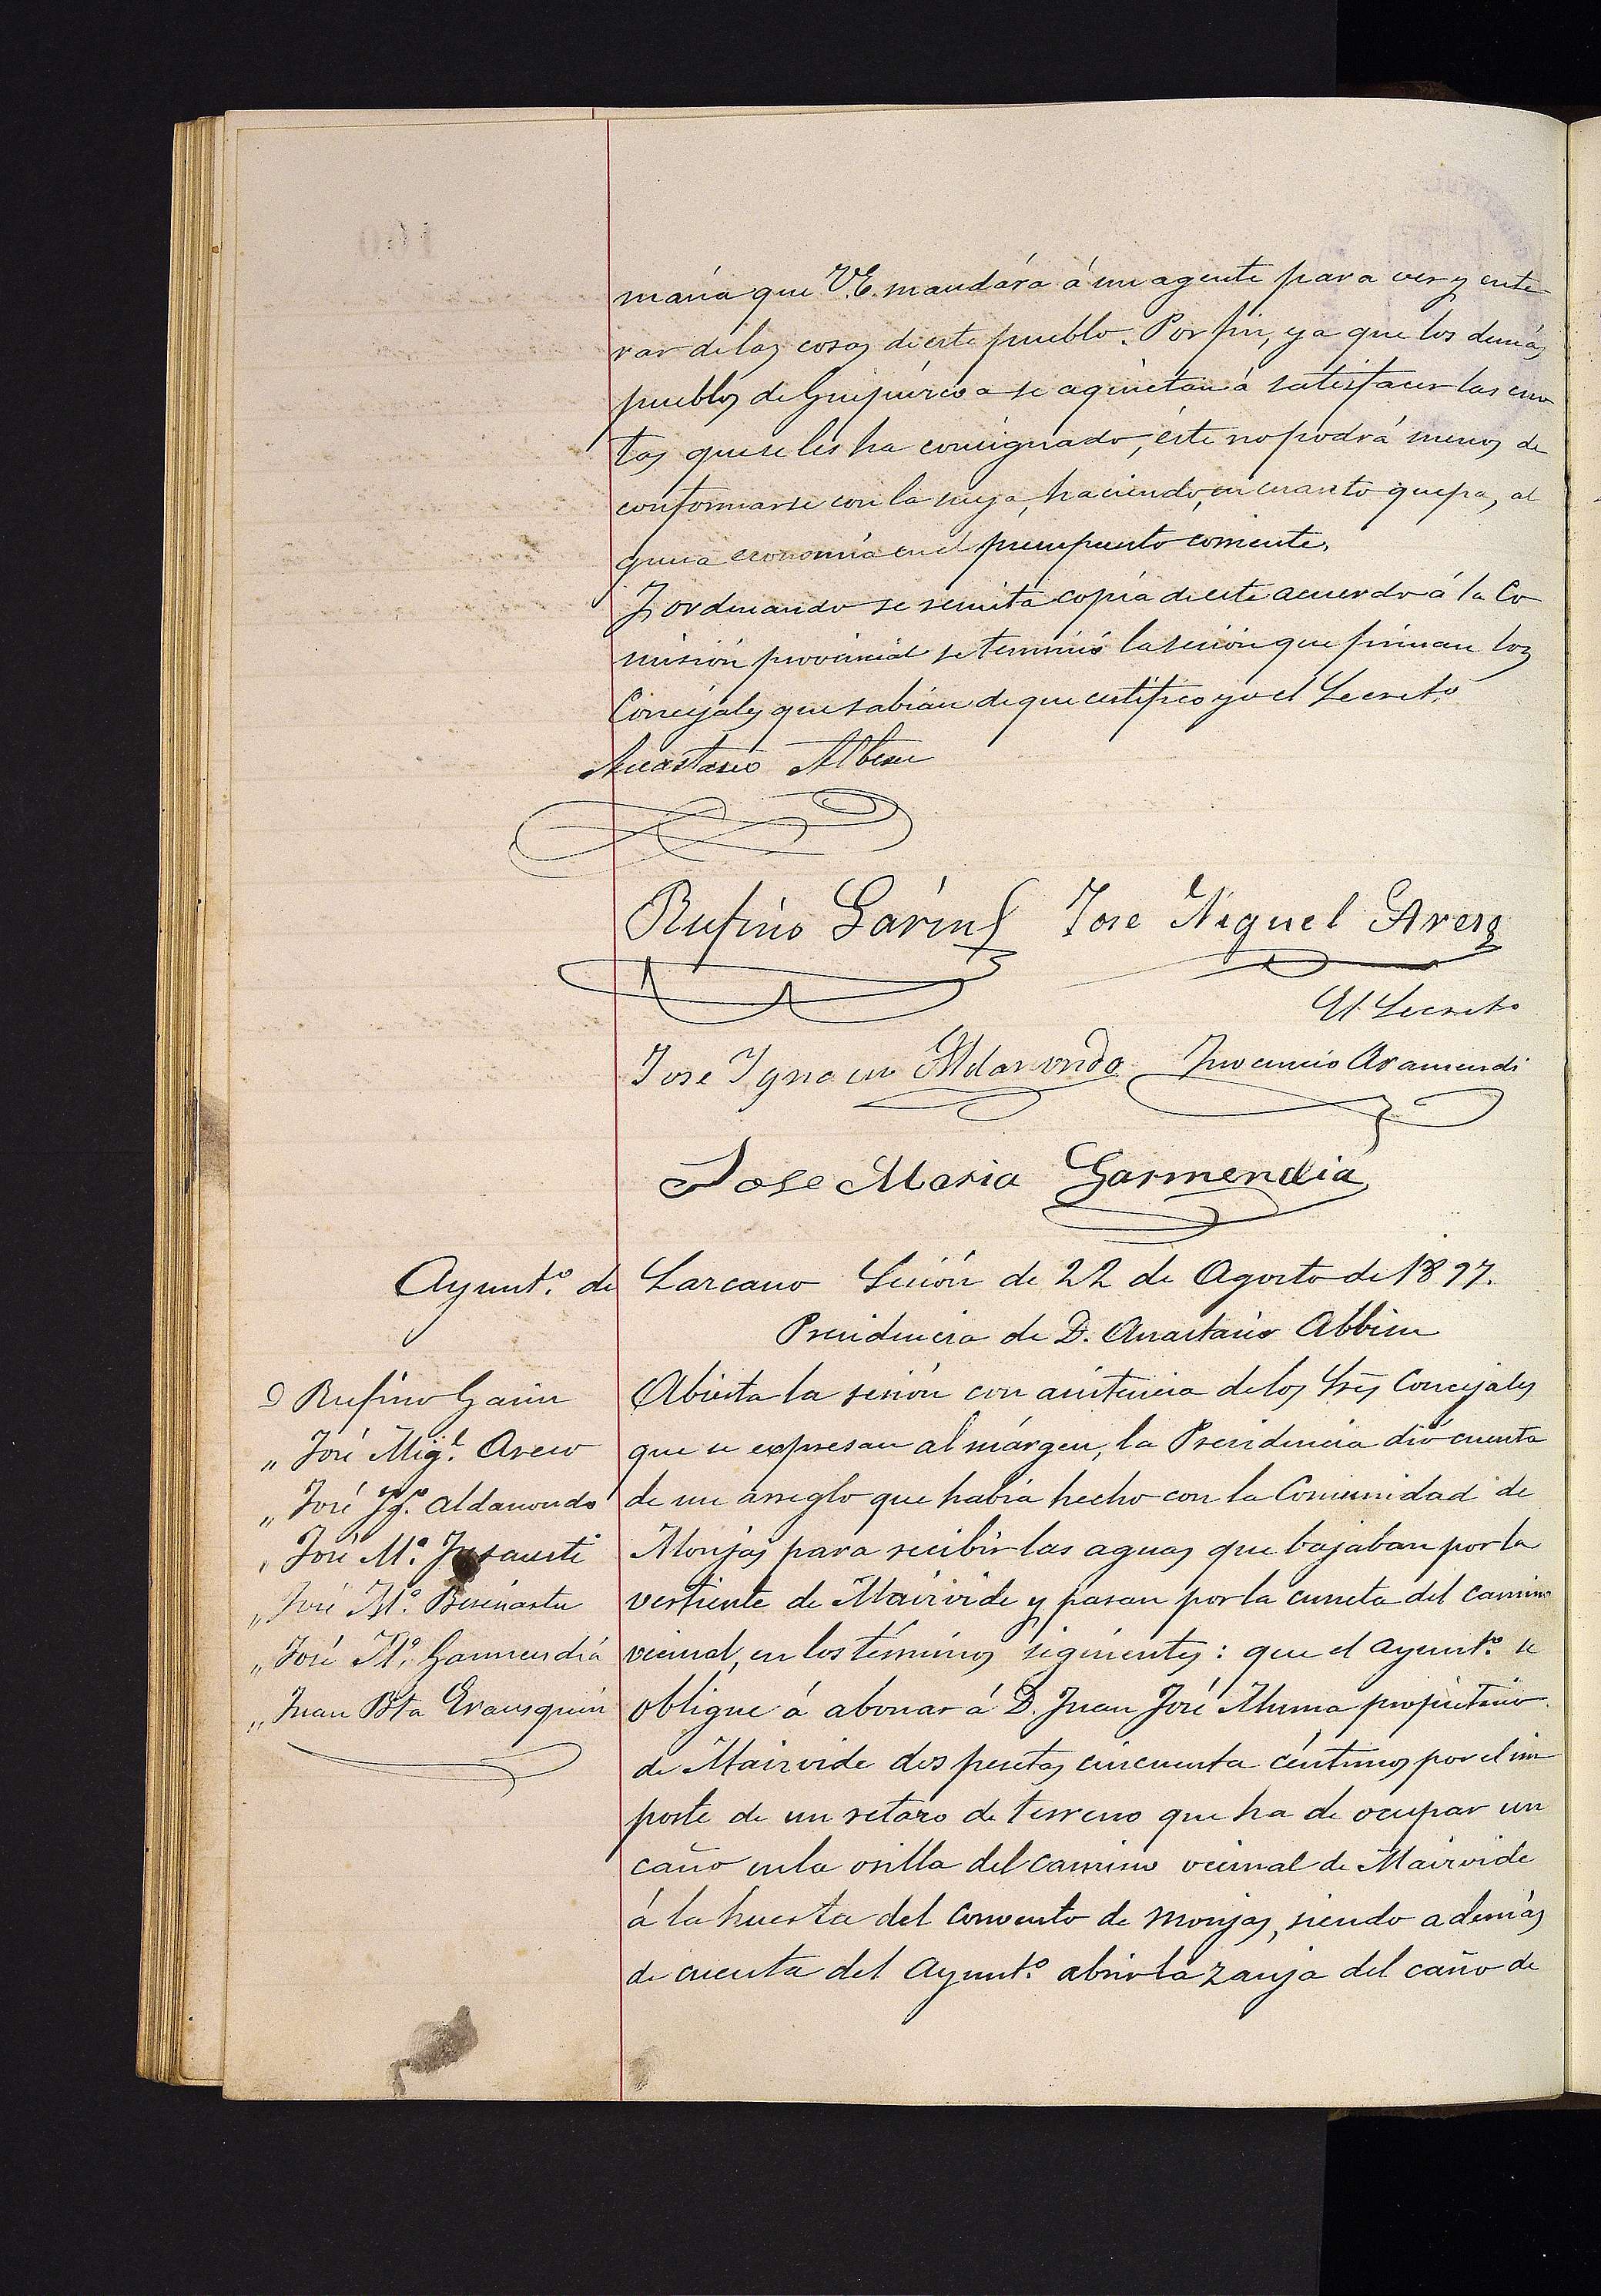 maría que V.E. mandára á un agente para ver y ente
rar de las cosas de este pueblo. Por fin, ya que los demás
pueblos de Guipúzcoa se aquietan á satisfacer las cuo
tas que se les ha consignado, éste no podrá menos de
conformarse con la suya, haciendo, en cuanto quepa, al
guna economía en el presupuesto corriente.
Y ordenando se remita copia de este acuerdo á la Co
misión provincial se terminó la sesión que firman los
Concejales que sabían de que certifico yo el Secretº
Anastasio Albisu
Rufino Garin José Miguel
El Secretº
Jose Ignacio Aldanondo Inocencio Aramendi
Jose Maria Garmendia
Ayuntº. de Lazcano Sesión de 22 de Agosto de 1897.
Presidencia de D. Anastasio Albisu
D Rufino Garin
„ José Migl.
„ José Ygº. Aldanondo
„ José Mª.
„ José Mª.
„ José Mª. Garmendia
„ Juan Bta Erausquin
Abierta la sesión con asistencia de los Sres Concejales
que se expresan al márgen, la Presidencia dió cuenta
de un arreglo que había hecho con la Comunidad de
Monjas para recibir las aguas que bajaban por la
vertiente de Mairoide y pasan por la cuneta del camino
vecinal, en los términos siguientes: que el Ayuntº. se
obligue á abonar á D. Juan José propietario
de Mairoide dos pesetas cincuenta céntimos por el im
porte de un retazo de terreno que ha de ocupar un
caño en la orilla del camino vecinal de Mairoide
á la huerta del Convento de Monjas, siendo además
de cuenta del Ayuntº. abrir la zanja del caño de